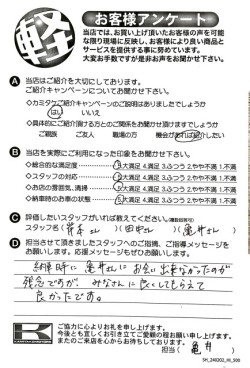 軽
お客様アンケート
当店では、お買い上げ頂いたお客様の声を可能
な限り現場に反映し、お客様により良い商品と
サービスを提供する事に努めています。
大変お手数ですが是非お声をお聞かせ下さい。
A 当店はご紹介を大切にしております。
ご紹介キャンペーンについてお聞かせ下さい。
◇カミタケご紹介キャンペーンのご説明はありましたでしょうか
はい いいえ
◇具体的にご紹介頂ける方とのご関係をお聞かせ頂けますでしょうか
ご親族 ご友人 職場の方 機会があれば紹介したい
B 当店を実際にご利用になった印象をお聞かせ下さい。
◇総合的な満足度 5.大満足 4.満足 3.ふつう 2.やや不満 1.不満
◇スタッフの対応 5.大満足 4.満足 3.ふつう 2.やや不満 1.不満
◇お店の雰囲気、清掃 5.大満足 4.満足 3.ふつう 2.やや不満 1.不満
◇納車時のお車の状態 5.大満足 4.満足 3.ふつう 2.やや不満 1.不満
C 評価したいスタッフがいれば教えてください。(複数回答可)
スタッフ名( さん )(田中さん)(亀井さん)
D 担当させて頂きましたスタッフへのご指摘、ご指導メッセージを
お願いします。応援メッセージもぜひお願いします。
納車時に亀井さんにお会い出来なかったのが
残念ですが、みなさんに良くしてもらえて
良かったです。
K
ご協力に心よりお礼を申し上げます。
今後とも宜しくお引き立てご愛顧の程お願い申し上げます。
またのご来店を心からお待ちしております。
担当( 亀井 )
SH_240202_HI_500